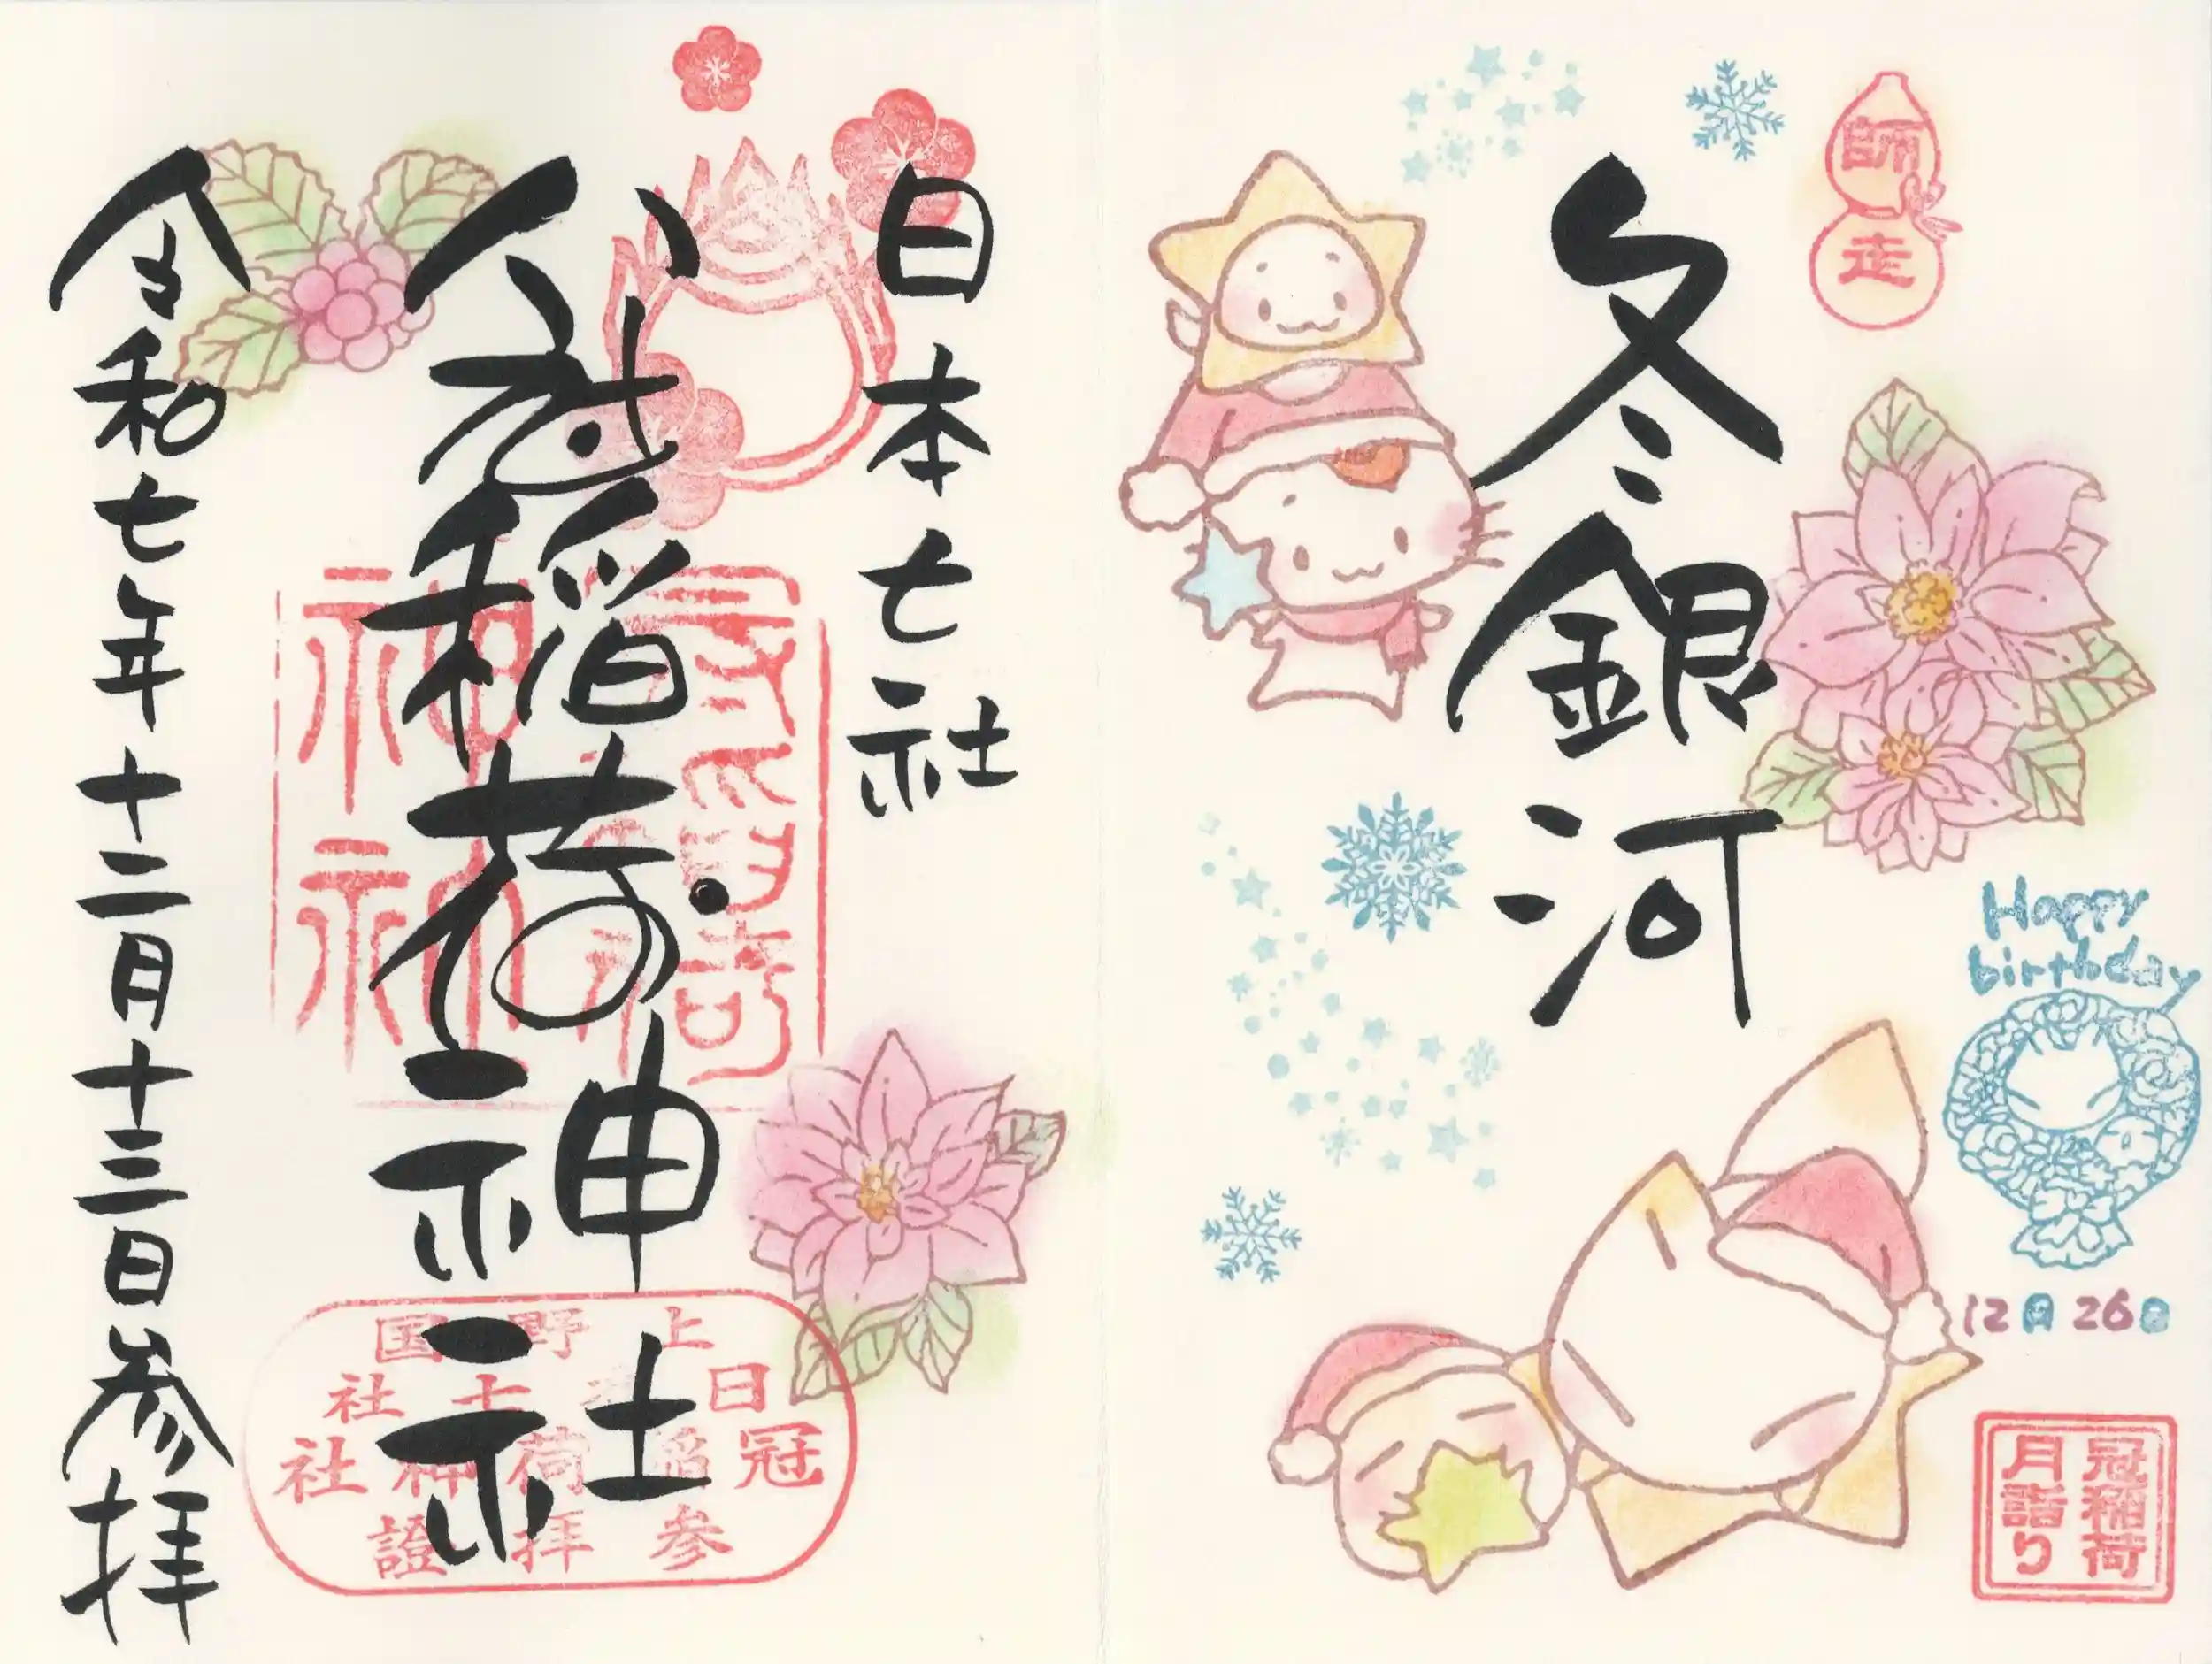 師走
冬銀河
Happy
birthday
12月26日
冠稲荷
月詣り
日本七社
冠稲荷神社
令和七年十二月十三日参拝
上野国
日本七社
冠稲荷神社
参拝證